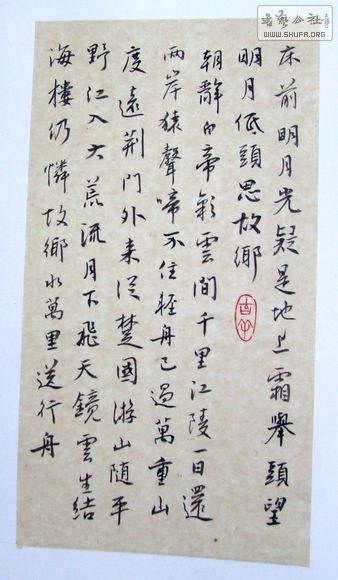 床前明月光疑是地上霜舉頭望
明月低頭思故鄉
朝辭白帝彩雲間千里江陵一日還
兩岸猿聲啼不住輕舟已過萬重山
度遠荆門外来從楚國游山随平
野江入大荒流月下飛天鏡雲生结
海樓仍憐故鄉水萬里送行舟
WWW.SHUFA.ORG